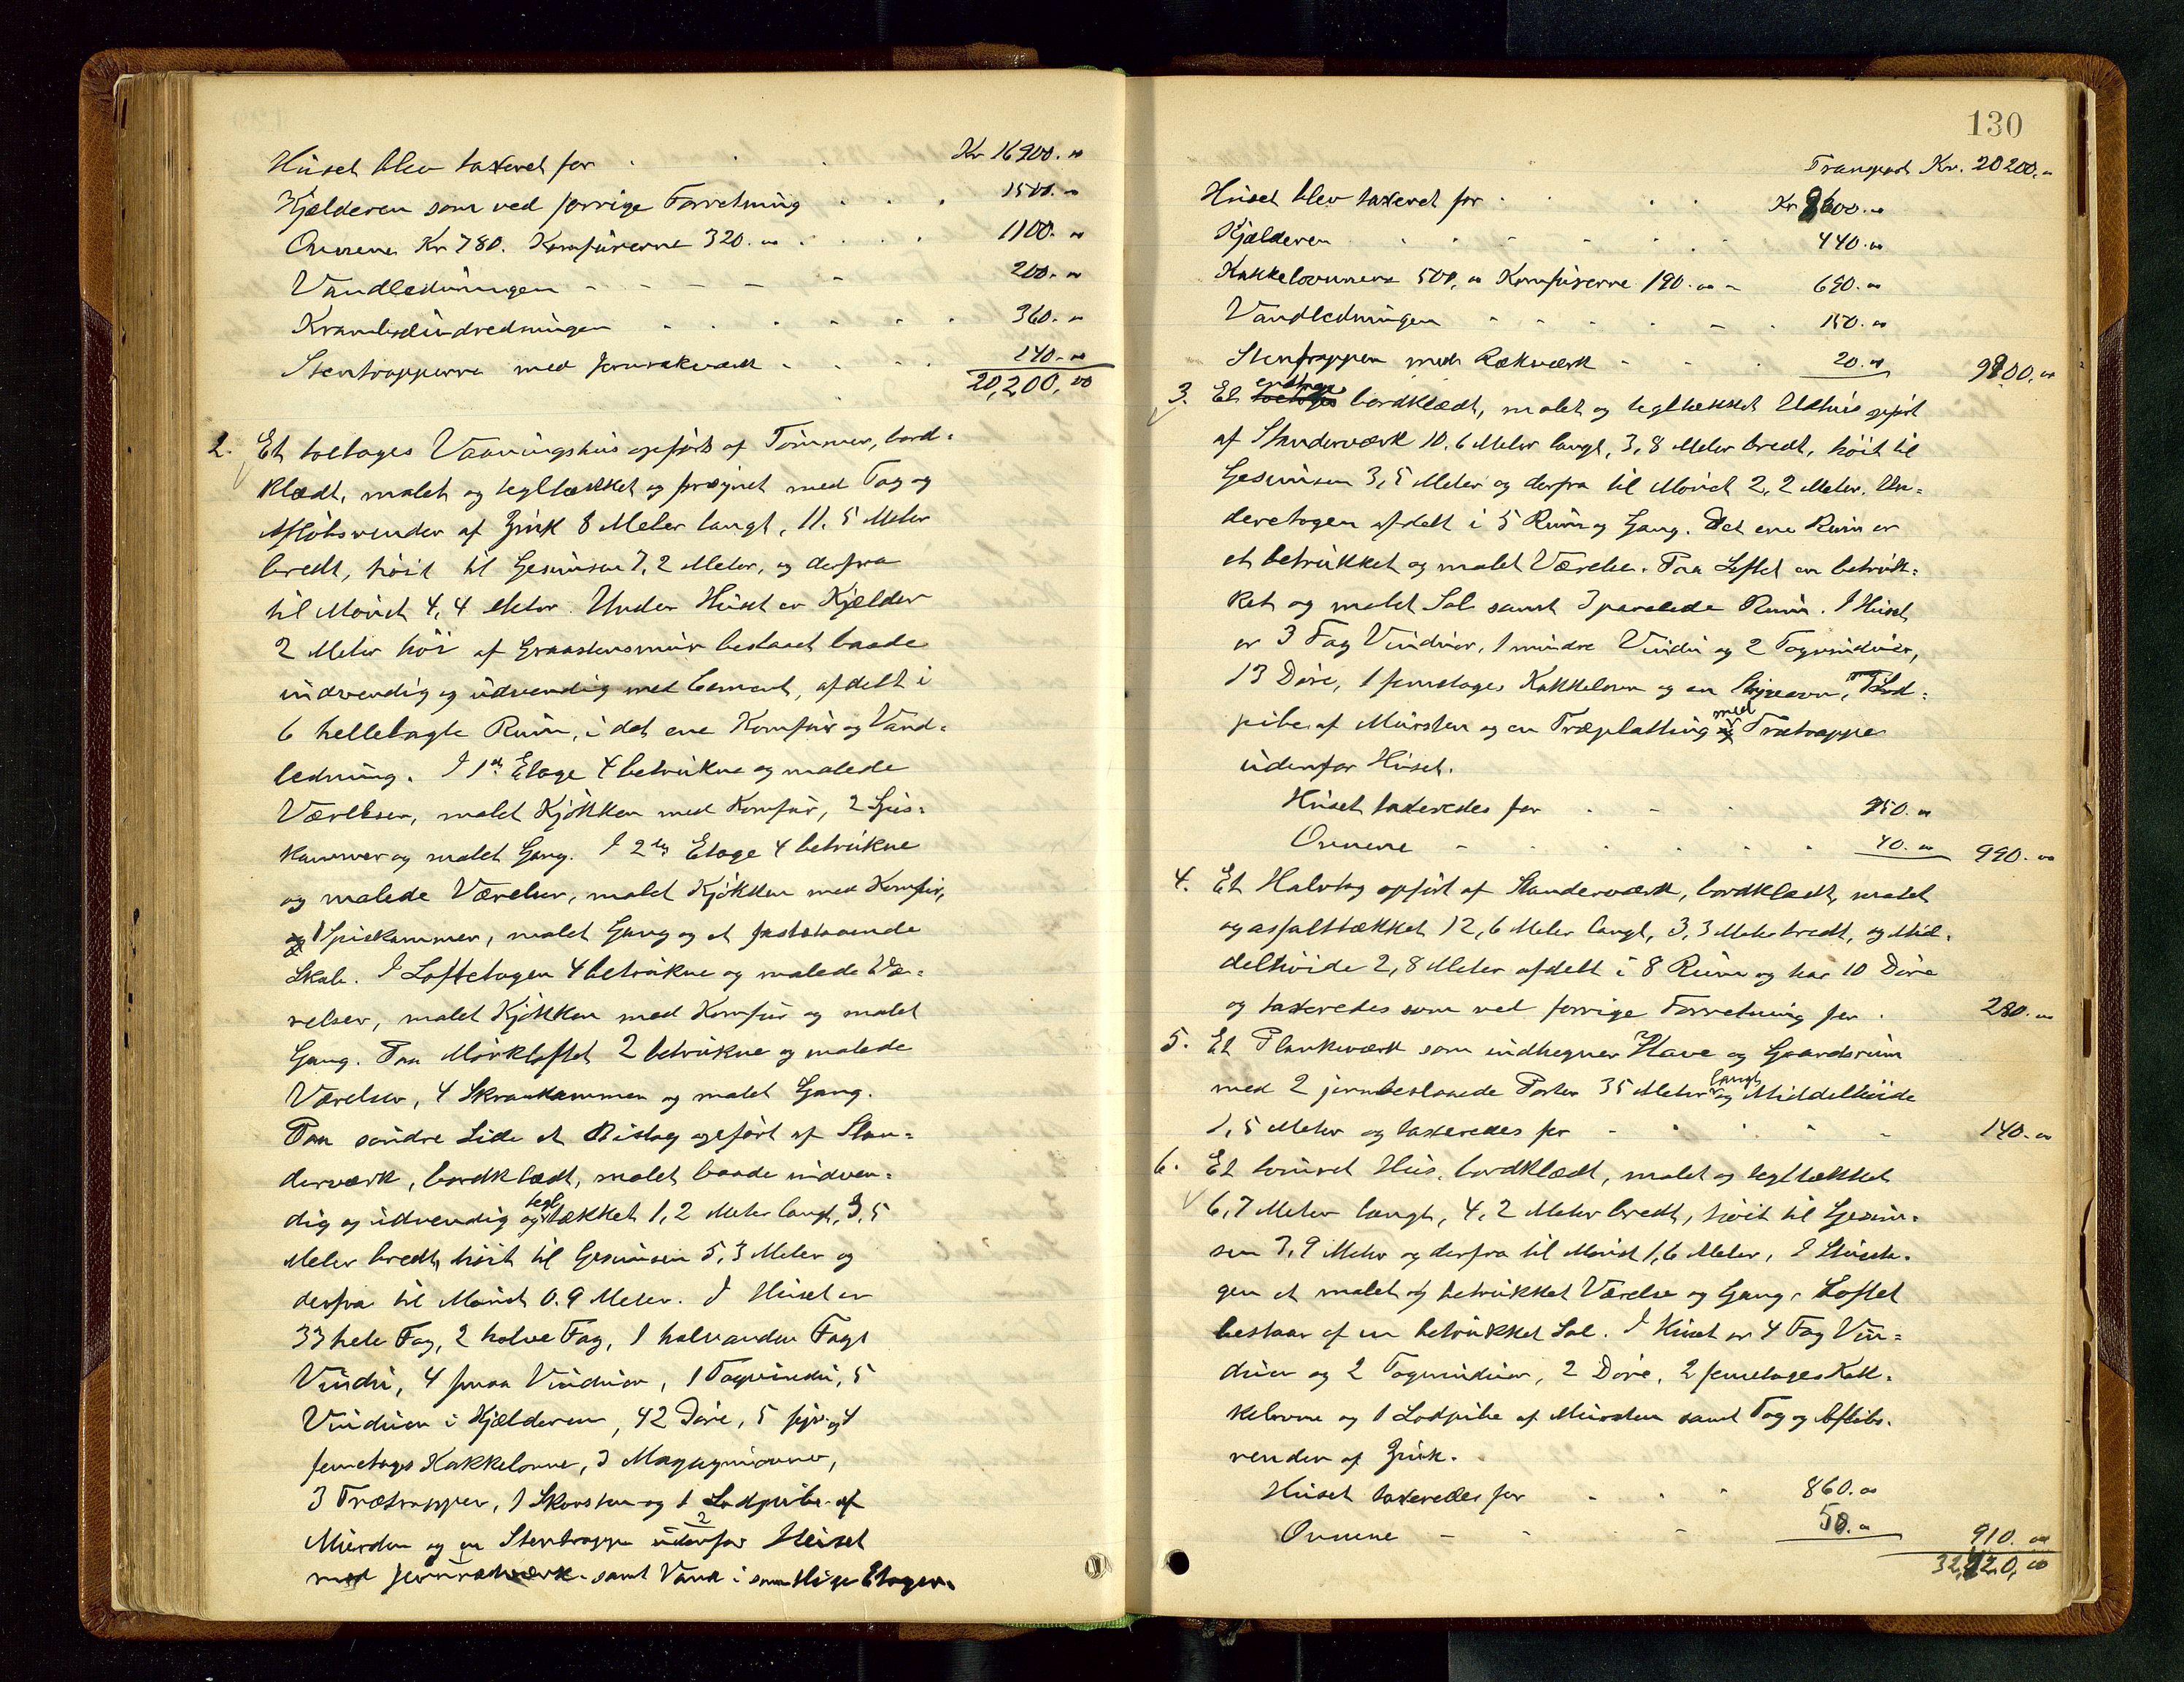 Huset blev taxeret for . . . Kr 16900.00
Kjælderen som ved forrige Forretning . . . 1500.00
Ovnene Kr 780. Komfurerne 320.00 . . . 1100.00
Vandledningen - - - - - 200.00
Krambodindredningen . . . . . 360.00
Stentrapperne med Jernrækværk . . . 140.00
20,200,00
2. Et toetages Vaaningshus opført af Tømmer, bord-
klædt, malet og tegltækket og forsynet med Tag og
Afløbsrender af Zink 8 Meter langt, 11,5 Meter
bredt, høit til Gesimsen 7,2 Meter, og derfra
til Mønet 4,4 Meter. Under Huset er Kjælder
2 Meter høi af Graastensmur beslaaet baade
indvendig og udvendig med Cement, afdelt i
6 hellelagte Rum, i det ene Komfur og Vand-
ledning. I 1ste Etage 4 betrukne og malede
Værelser, malet Kjøkken med Komfur, 2 Spis-
kammer og malet Gang. I 2den Etage 4 betrukne
og malede Værelser, malet Kjøkken med Komfur,
1 Spiskammer, malet Gang og et faststaaende
Skab. I Loftetagen 4 betrukne og malede Væ-
relser, malet Kjøkken med Komfur og malet
Gang. Paa Mørkloftet 2 betrukne og malede
Værelser, 4 Skraakammer og malet Gang.
Paa søndre Side et Bislag opført af Stan-
derværk, bordklædt, malet baade indven-
dig og udvendig og tegltækket 1,2 Meter langt, 3,5
Meter bredt, høit til Gesimsen 5,3 Meter og
derfra til Mønet 0.9 Meter. I Huset er
33 hele Fag, 2 halve Fag, 1 halvanden Fags
Vindu, 4 smaa Vinduer, 1 Tagvindu, 5
Vinduer i Kjælderen, 42 Døre, 5 fyr- og 4
femetages Kakkelovne, 3 Magazinovne,
3 Trætrapper, 1 Skorsten og 1 Lodpibe af
Mursten og en Stentrappe udenfor Huset
med Jernrækværk. samt Vand i samtlige Etager.
130
Transport Kr. 20200.00
Huset blev taxeret for . . . . Kr 8600.00
Kjælderen . . . . . . 440.00
Kakkelovnene 500,00 Komfurerne 190.00 - 690.00
Vandledningen - - - - - 150.00
Stentrappen med Rækværk - - - 20.00 9900,00
3. Et enetages bordklædt, malet og tegltækket Udhus opført
af Standerværk 10,6 Meter langt, 3,8 Meter bredt, høit til
Gesimsen 3,5 Meter og derfra til Mønet 2,2 Meter. Un-
deretagen afdelt i 5 Rum og Gang. Det ene Rum er
et betrukket og malet Værelse. Paa Loftet en betruk-
ket og malet Sal samt 3 panelede Rum. I Huset
er 3 Fag Vinduer, 1 mindre Vindu og 2 Tagvinduer,
13 Døre, 1 femetages Kakkelovn og en Lod-
pibe af Mursten og en Træplatting med Trætrappe
udenfor Huset.
Huset taxeredes for . . . 950.00
Ovnene - . . . . . 40.00 990.00
4. Et Halvtag opført af Standerværk, bordklædt, malet
og asfalttækket 12,6 Meter langt, 3,3 Meter bredt, og Mid-
delhøide 2,8 Meter afdelt i 8 Rum og har 10 Døre
og taxeredes som ved forrige Forretning for . 280.00
5. Et Plankeværk som indhegner Have og Gaardsrum
med 2 jernbeslaaede Porter 35 Meter langt og Middelhøide
1,5 Meter og taxeredes for - . . . - 140.00
6. Et tømret Hus, bordklædt, malet og tegltækket
6,7 Meter langt, 4,2 Meter bredt, høit til Gesim-
sen 3,9 Meter og derfra til Mønet 1,6 Meter, I Stueeta-
gen et malet og betrukket Værelse og Gang. Loftet
bestaar af en betrukket Sal. I Huset er 4 Fag Vin-
duer og 2 Tagvinduer, 2 Døre, 2 femetages Kak-
kelovne og 1 Lodpibe af Mursten samt Tag og Afløbs-
render af Zink.
Huset taxeredes for . . . 860.00
Ovnene - . . - 50.00 910.00
32,420,00